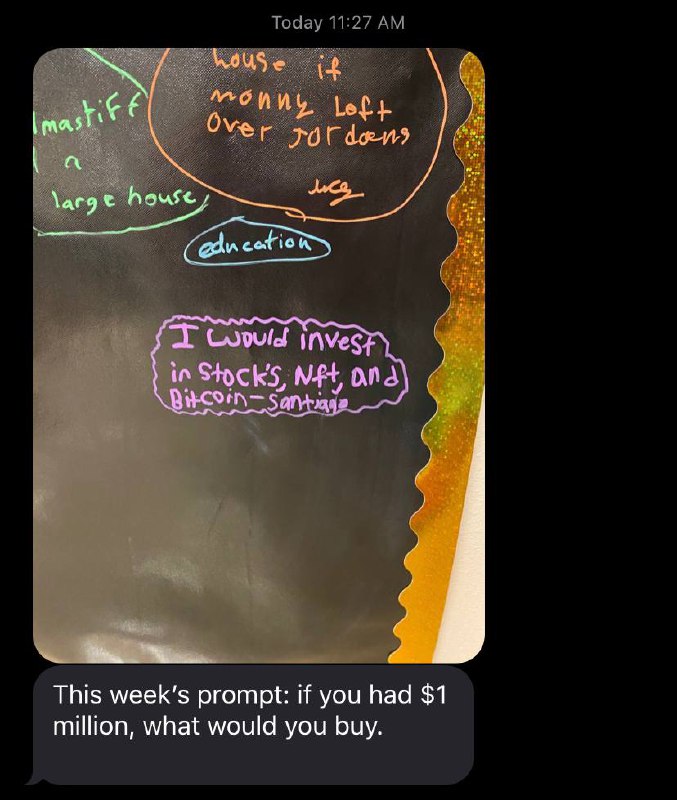 Today 11:27 AM
house if
monny Left
over Jordans
mastiff
a
large house
education
I would invest
in Stock's, Nft, and
Bitcoin-Santiago
This week's prompt: if you had $1
million, what would you buy.